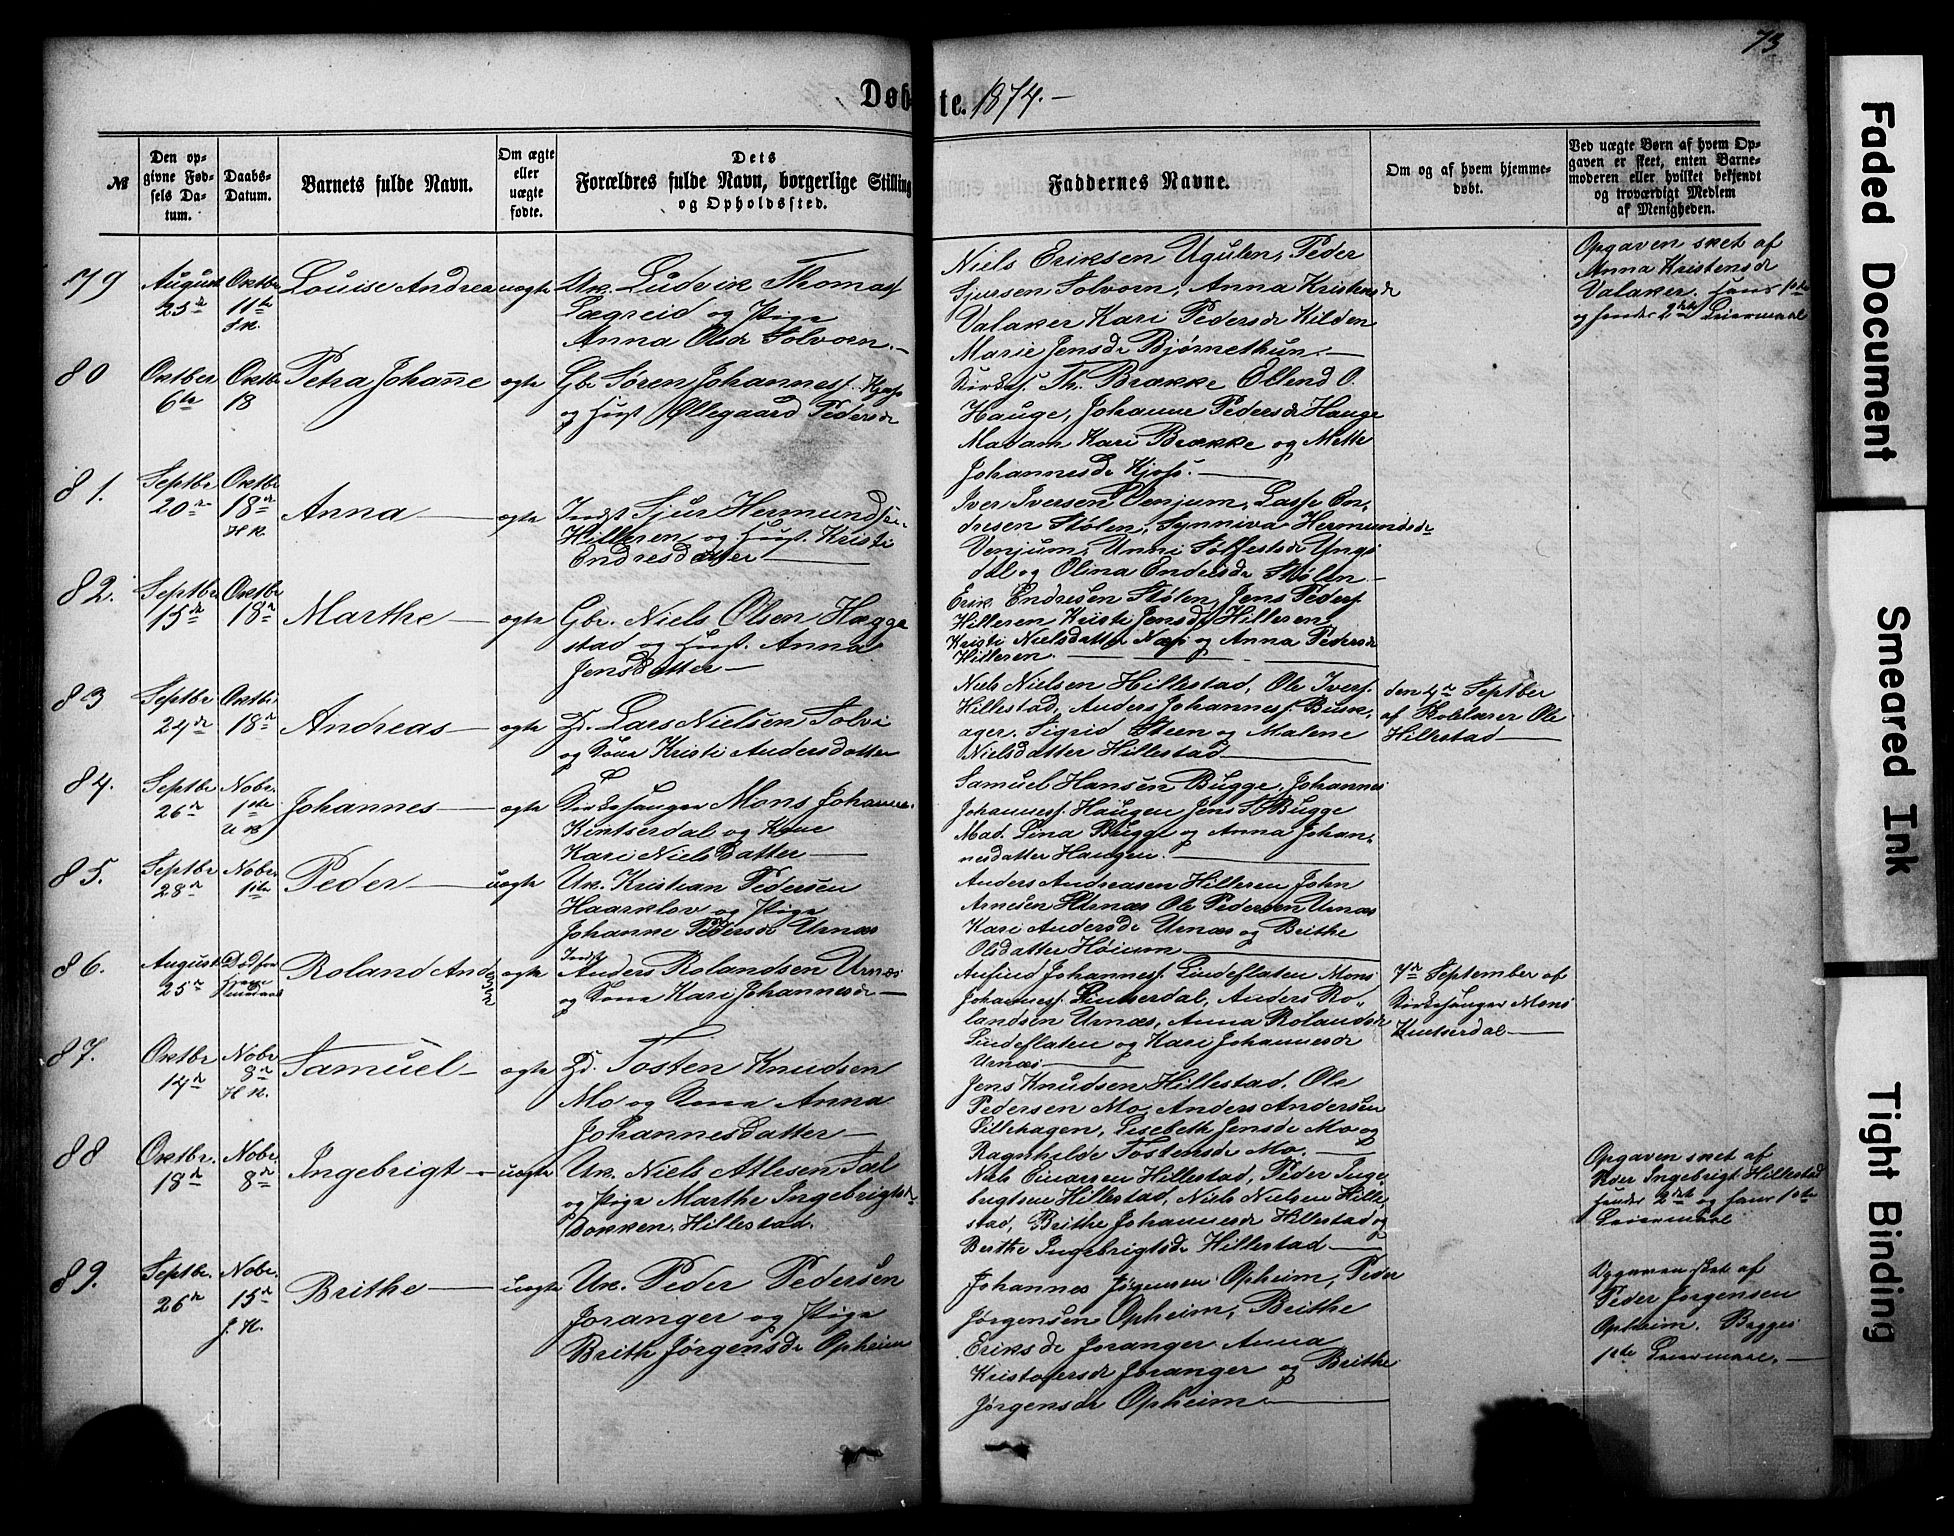 73
Døbte. 1874.-
№
Den op-
givne Fød-
sels Da-
tum.
Daabs-
Datum.
Barnets fulde Navn.
Om ægte
eller
uægte
fødte.
Dets
Forældres fulde Navn, borgerlige Stilling
og Opholdssted.
Faddernes Navne.
Om og af hvem hjemme-
døbt.
Ved uægte Børn af hvem Op-
gaven er skeet, enten Barne-
moderen eller hvilket bekjendt
og troværdigt Medlem
af Menigheden.
79 August 25de Oktbr 11te Louise Andrea uægte
Uk. Ludvik Thomass
Lægreid og Pige
Anna Olsdr Solvorn.-
Niels Eriksen Ugulen, Peder
Sjursen Solvorn, Anna Kristensdr
Valaker Kari Pedersdr Kilden
Marie Jensdr Bjørnethun.-
Opgaven sket af
Anna Kristensdr
Valaker. hans 1ste
og hendes 2det Leiermaal
80 Oktber 6te Oktbr 18 Petra Johanne ægte
Gbr Søren Johanness. Kjøs
og Hust Øllegaard Pedersdr
Th. Brække Ellend O.
Hauge, Johanne Pedersdr Hauge
Madam Kari Brække og Mette
Johannesdr Kjøs.-
81. Septbr 20de Oktbr 18de H K. Anna- ægte
Indst Sjur Hermundsen
Hilleren og Hust. Kristi
Endresdatter-
Iver Iversen Venjum, Lasse En-
dresen Stølen, Synniva Hermundsdr
Venjum, Unni Sølfestsdr Ungs
dal og Olina Endresdr Stølen-
82. Septbr 15de Oktbr 18de Marthe- ægte
Gbr. Niels Olsen Hægge
stad og Hust. Anna
Jensdatter-
Erik Endresen Stølen, Jens Peders.
Hilleren Kristi Jensdr Hilleren,
Kristi Nielsdatter Næs og Anna Pedersdr
Hilleren.-
83 Septbr 24de Oktbr. 18de Andreas- ægte
Pd. Lars Nielsen Solvi
og Kone Kristi Andersdatter
Niels Nielsen Hillestad, Ole Ivers.
Hillestad, Anders Johanness. Busk,
ager. Sigrid Steen og Malene
Nielsdatter Hillestad-
den 4de Septber
af Skolelærer Ole
Hillestad-
84. Septbr 26de Nobr. 1ste U K Johannes- ægte
Kirkesanger Mons Johannes.
Kintserdal og Kone
Kari Nielsdatter-
Samuel Hansen Bugge, Johannes
Johanness. Haugen Jens S Bugge
Mad. Lina Bugge og Anna Johan-
nesdatter Haugen.-
85. Septbr 28de Nobr. 1ste Peder- uægte
Uk. Kristian Pedersen
Haarklov og Pige
Johanne Pedersdr Urnæs
Anders Andreasen Hilleren John
Arnesen Urnæs Ole Pedersen Urnæs
Kari Andersdr Urnæs og Brithe
Olsdatter Høium-
86. August 25de Død før Roland ægte
Indst
Anders Rolandsen Urnæs
og Kone Kari Johannesdr-
Anfind Johanness. Lindeflaten Mons
Johanness. Kintserdal, Anders Ro-
landsen Urnæs, Anna Rolandsdr
Lindeflaten og Kari Johannesdr
Urnæs-
7de September af
Kirkesanger Mons
Kintserdal-
87. Oktbr. 14de Nobr. 8de H K. Samuel- ægte
Pd. Tosten Knudsen
Mo og Kone Anna
Johannesdatter-
Jens Knudsen Hillestad, Ole
Pedersen Mo, Anders Andersen
Lillehagen, Lisebeth Jensdr Mo og
Ragnhilde Tostensdr Mo.-
88 Oktbr. 18de Nobr 8de Ingebrigt- uægte
Uk. Niels Atlesen Sæl
og Pige Marthe Ingebrigtsdr
Dokken, Hillestad.
Niels Einarsen Hillestad, Peder Inge-
brigtsen Hillestad, Niels Nielsen Hille,
stad, Brithe Johannesdr Hillestad og
Berthe Ingebrigtsdr Hillestad-
Opgaven sket af
Peder Ingebrigt. Hillestad
hendes 2det og hans 1ste
Leiermaal
89. Septbr. 26de Nobr. 15de J. K. Brithe- uægte
Uk. Peder Pedersen
Joranger og Pige
Brithe Jørgensdr Opheim
Johannes Jørgensen Opheim, Peder
Jørgensen Opheim, Brithe
Eriksdr Joranger Anna
Kristofersdr Joranger og Brithe
Jørgensdr Opheim-
Opgaven sket af
Peder Jørgensen
Opheim. Begges
1ste Leiermaal.-
Faded Document
Smeared Ink
Tight Binding